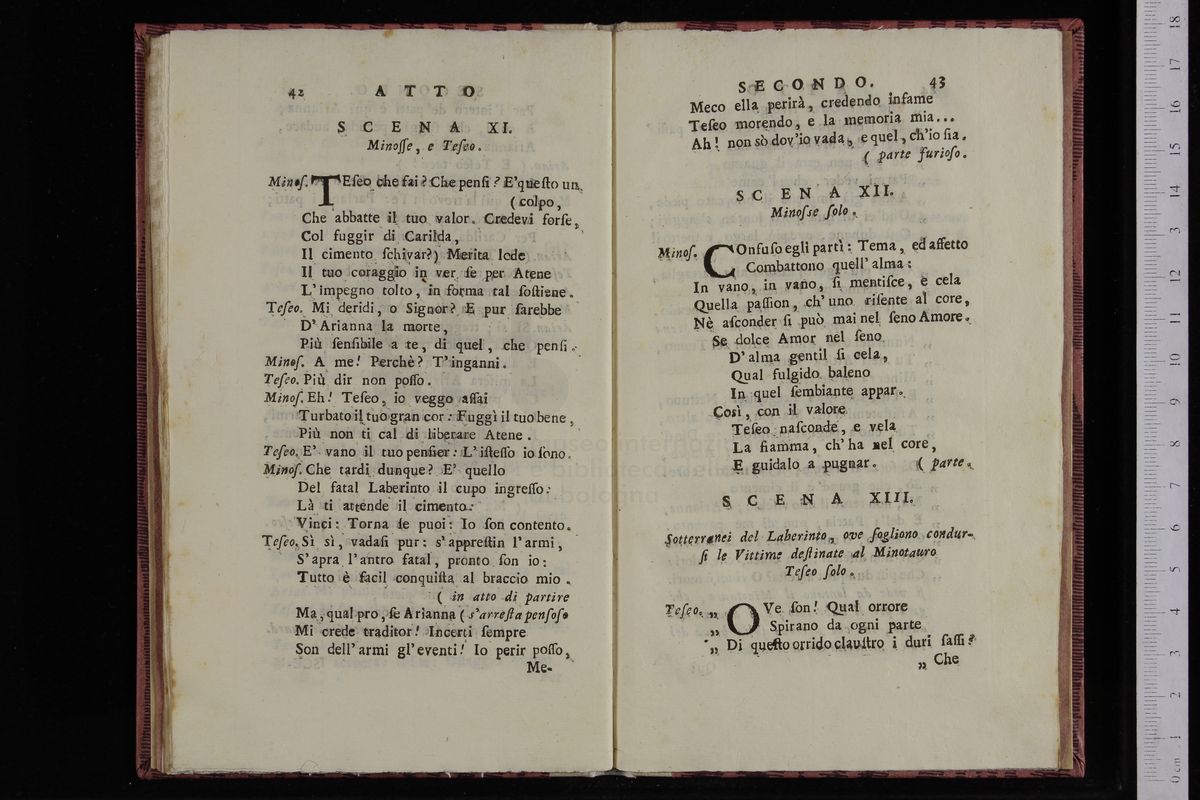 42 ATTO
SCENA XI.
Minoſſe, e Teſeo.
Minoſ. TEſeo che fai? Che penſi? E' queſto un
(colpo,
Che abbatte il tuo valor. Credevi forſe,
Col fuggir di Carilda,
Il cimento ſchivar?) Merita lode
Il tuo coraggio in ver, ſe per Atene
L'impegno tolto, in forma tal ſoſtiene.
Teſeo. Mi deridi, o Signor? E pur ſarebbe
D'Arianna la morte,
Più ſenſibile a te, di quel, che penſi.
Minoſ. A me! Perchè? T'inganni.
Teſeo. Più dir non poſſo.
Minoſ. Eh! Teſeo, io veggo aſſai
Turbato il tuo gran cor: Fuggì il tuo bene,
Più non ti cal di liberare Atene.
Teſeo. E' vano il tuo penſier: L'iſteſſo io ſono.
Minoſ. Che tardi dunque? E' quello
Del fatal Laberinto il cupo ingreſſo:
Là ti attende il cimento:
Vinci: Torna ſe puoi: Io ſon contento.
Teſeo. Sì sì, vadaſi pur: s'appreſtin l'armi,
S'apra l'antro fatal, pronto ſon io:
Tutto è facil conquiſta al braccio mio.
( in atto di partire
Ma, qual pro, ſe Arianna ( s'arreſta penſoſo
Mi crede traditor! Incerti ſempre
Son dell'armi gl'eventi! Io perir poſſo,
Me-
SECONDO. 43
Meco ella perirà, credendo infame
Teſeo morendo, e la memoria mia...
Ah! non sò dov'io vada, e quel, ch'io ſia.
( parte furioſo.
SCENA XII.
Minoſse ſolo.
Minoſ. COnfuſo egli partì: Tema, ed affetto
Combattono quell'alma:
In vano, in vano, ſi mentiſce, e cela
Quella paſſion, ch'uno riſente al core,
Nè aſconder ſi può mai nel ſeno Amore.
Se dolce Amor nel ſeno
D'alma gentil ſi cela,
Qual fulgido baleno
In quel ſembiante appar.
Così, con il valore
Teſeo naſconde, e vela
La fiamma, ch'ha nel core,
E guidalo a pugnar. ( parte.
SCENA XIII.
Sotterranei del Laberinto, ove ſogliono condur-
ſi le Vittime deſtinate al Minotauro
Teſeo ſolo.
Teſeo. „ OVe ſon! Qual orrore
„ Spirano da ogni parte
„ Di queſto orrido clauſtro i duri ſaſſi?
„ Che